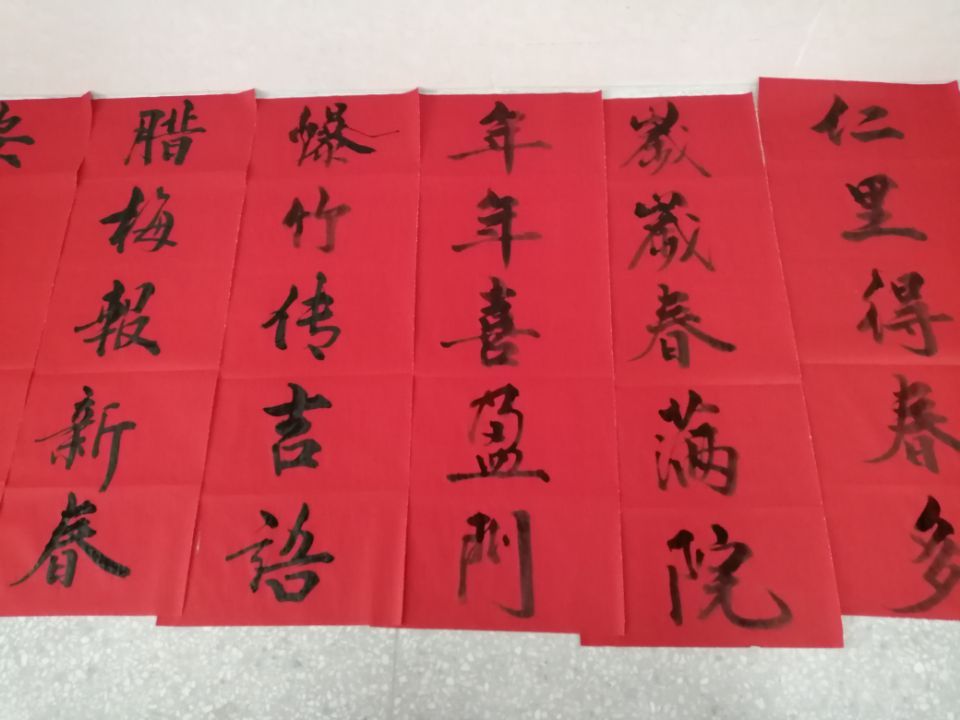 仁里得春多
歲歲春满院
年年喜盈門
爆竹传吉語
腊梅報新春